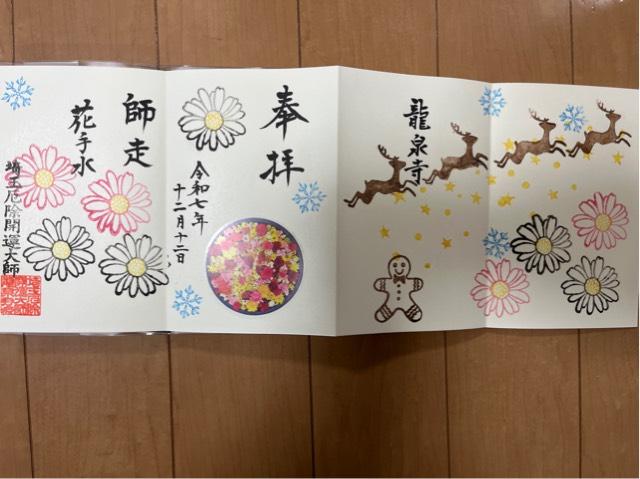 龍泉寺
奉拝
令和七年
十二月十二日
師走
花手水
埼玉厄除開運大師